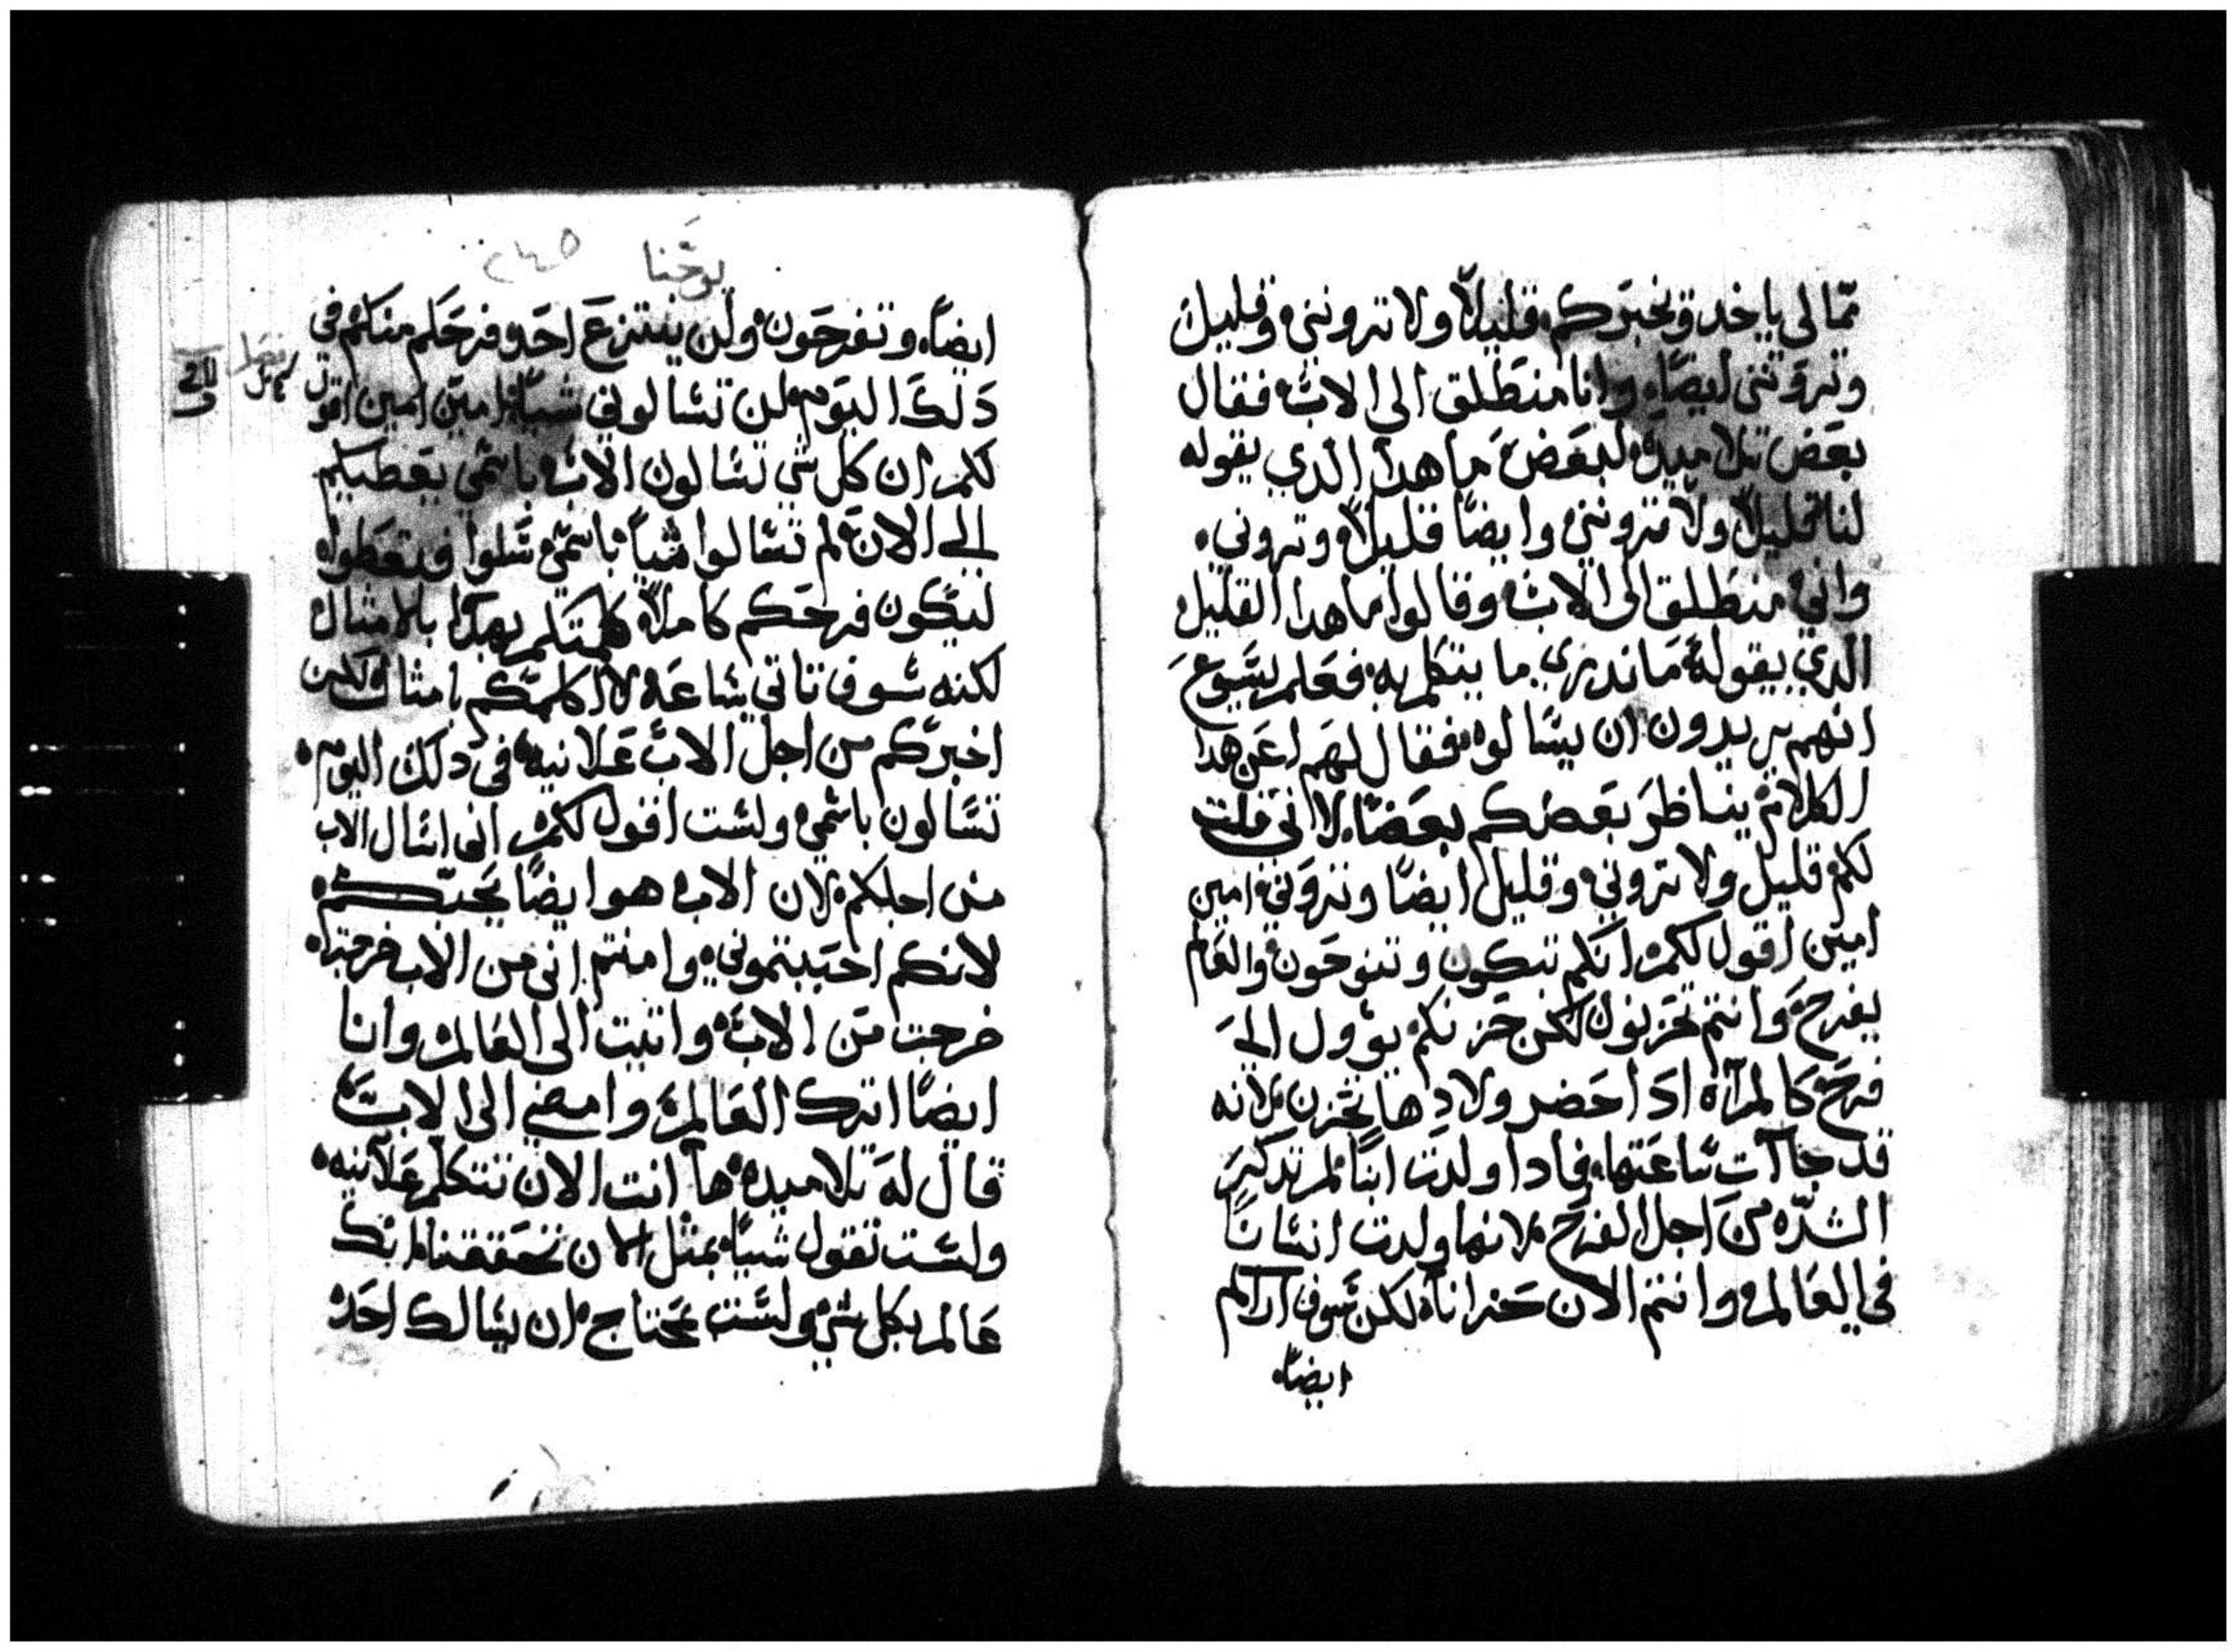 مما لى ياخد ويخبركم قليلاً ولا تروننى وقليل
وتروننى ايضاً وانا منطلق الى الاب فقال
بعض تلاميده لبعض ما هدا الدي يقوله
لنا قليلاً ولا تروننى وايضاً قليلاً وتروني
واني منطلق الى الاب وقالوا ما هدا القليل
الدي يقوله ما ندري ما يتكلم به فعلم يسوع
انهم يريدون ان يسالوه فقال لهم اعن هدا
الكلام يناظر بعضكم بعضاً لانى قلت
لكم قليل ولا تروني وقليل ايضاً وتروني امين
امين اقول لكم انكم تبكون وتنوحون والعالم
يفرح وانتم تحزنون لكن حزنكم يوول الى
فرح كالمرآة ادا حضر ولادها تحزن لانه
قد جاآت ساعتها فادا ولدت ابناً لم تدكر
الشدّه من اجل الفرح لانها ولدت انساناً
في العالم وانتم الان حزاناً لكن سوف اراكم
ايضاً
يوحنا ٢٤٥
ايضاً وتفرحون ولن ينتزع احد فرحكم منكم في
دلك اليوم لن تسالوني شياً امين امين اقول
لكم ان كل شي تسالون الاب باسمي يعطيكم
الى الان لم تسالوا شياً باسمي سلوا فتعطوا
ليكون فرحكم كاملاً كلمتكم بهدا بالامثال
لكنه سوف تاتي ساعه لا اكلمكم بامثال لكن
اخبركم من اجل الاب علانيه في دلك اليوم
تسالون باسمي ولست اقول لكم انى اسال الاب
من اجلكم لان الاب هو ايضاً يحبكم
لانكم احببتموني وامنتم انى من الاب خرجت
خرجت من الاب واتيت الى العالم وانا
ايضاً اترك العالم وامضي الى الاب
قال له تلاميده ها انت الان تتكلم علانيه
ولست تقول شياً بمثل الان تحققنا انك
عالم بكل شي ولست تحتاج ان يسالك احد